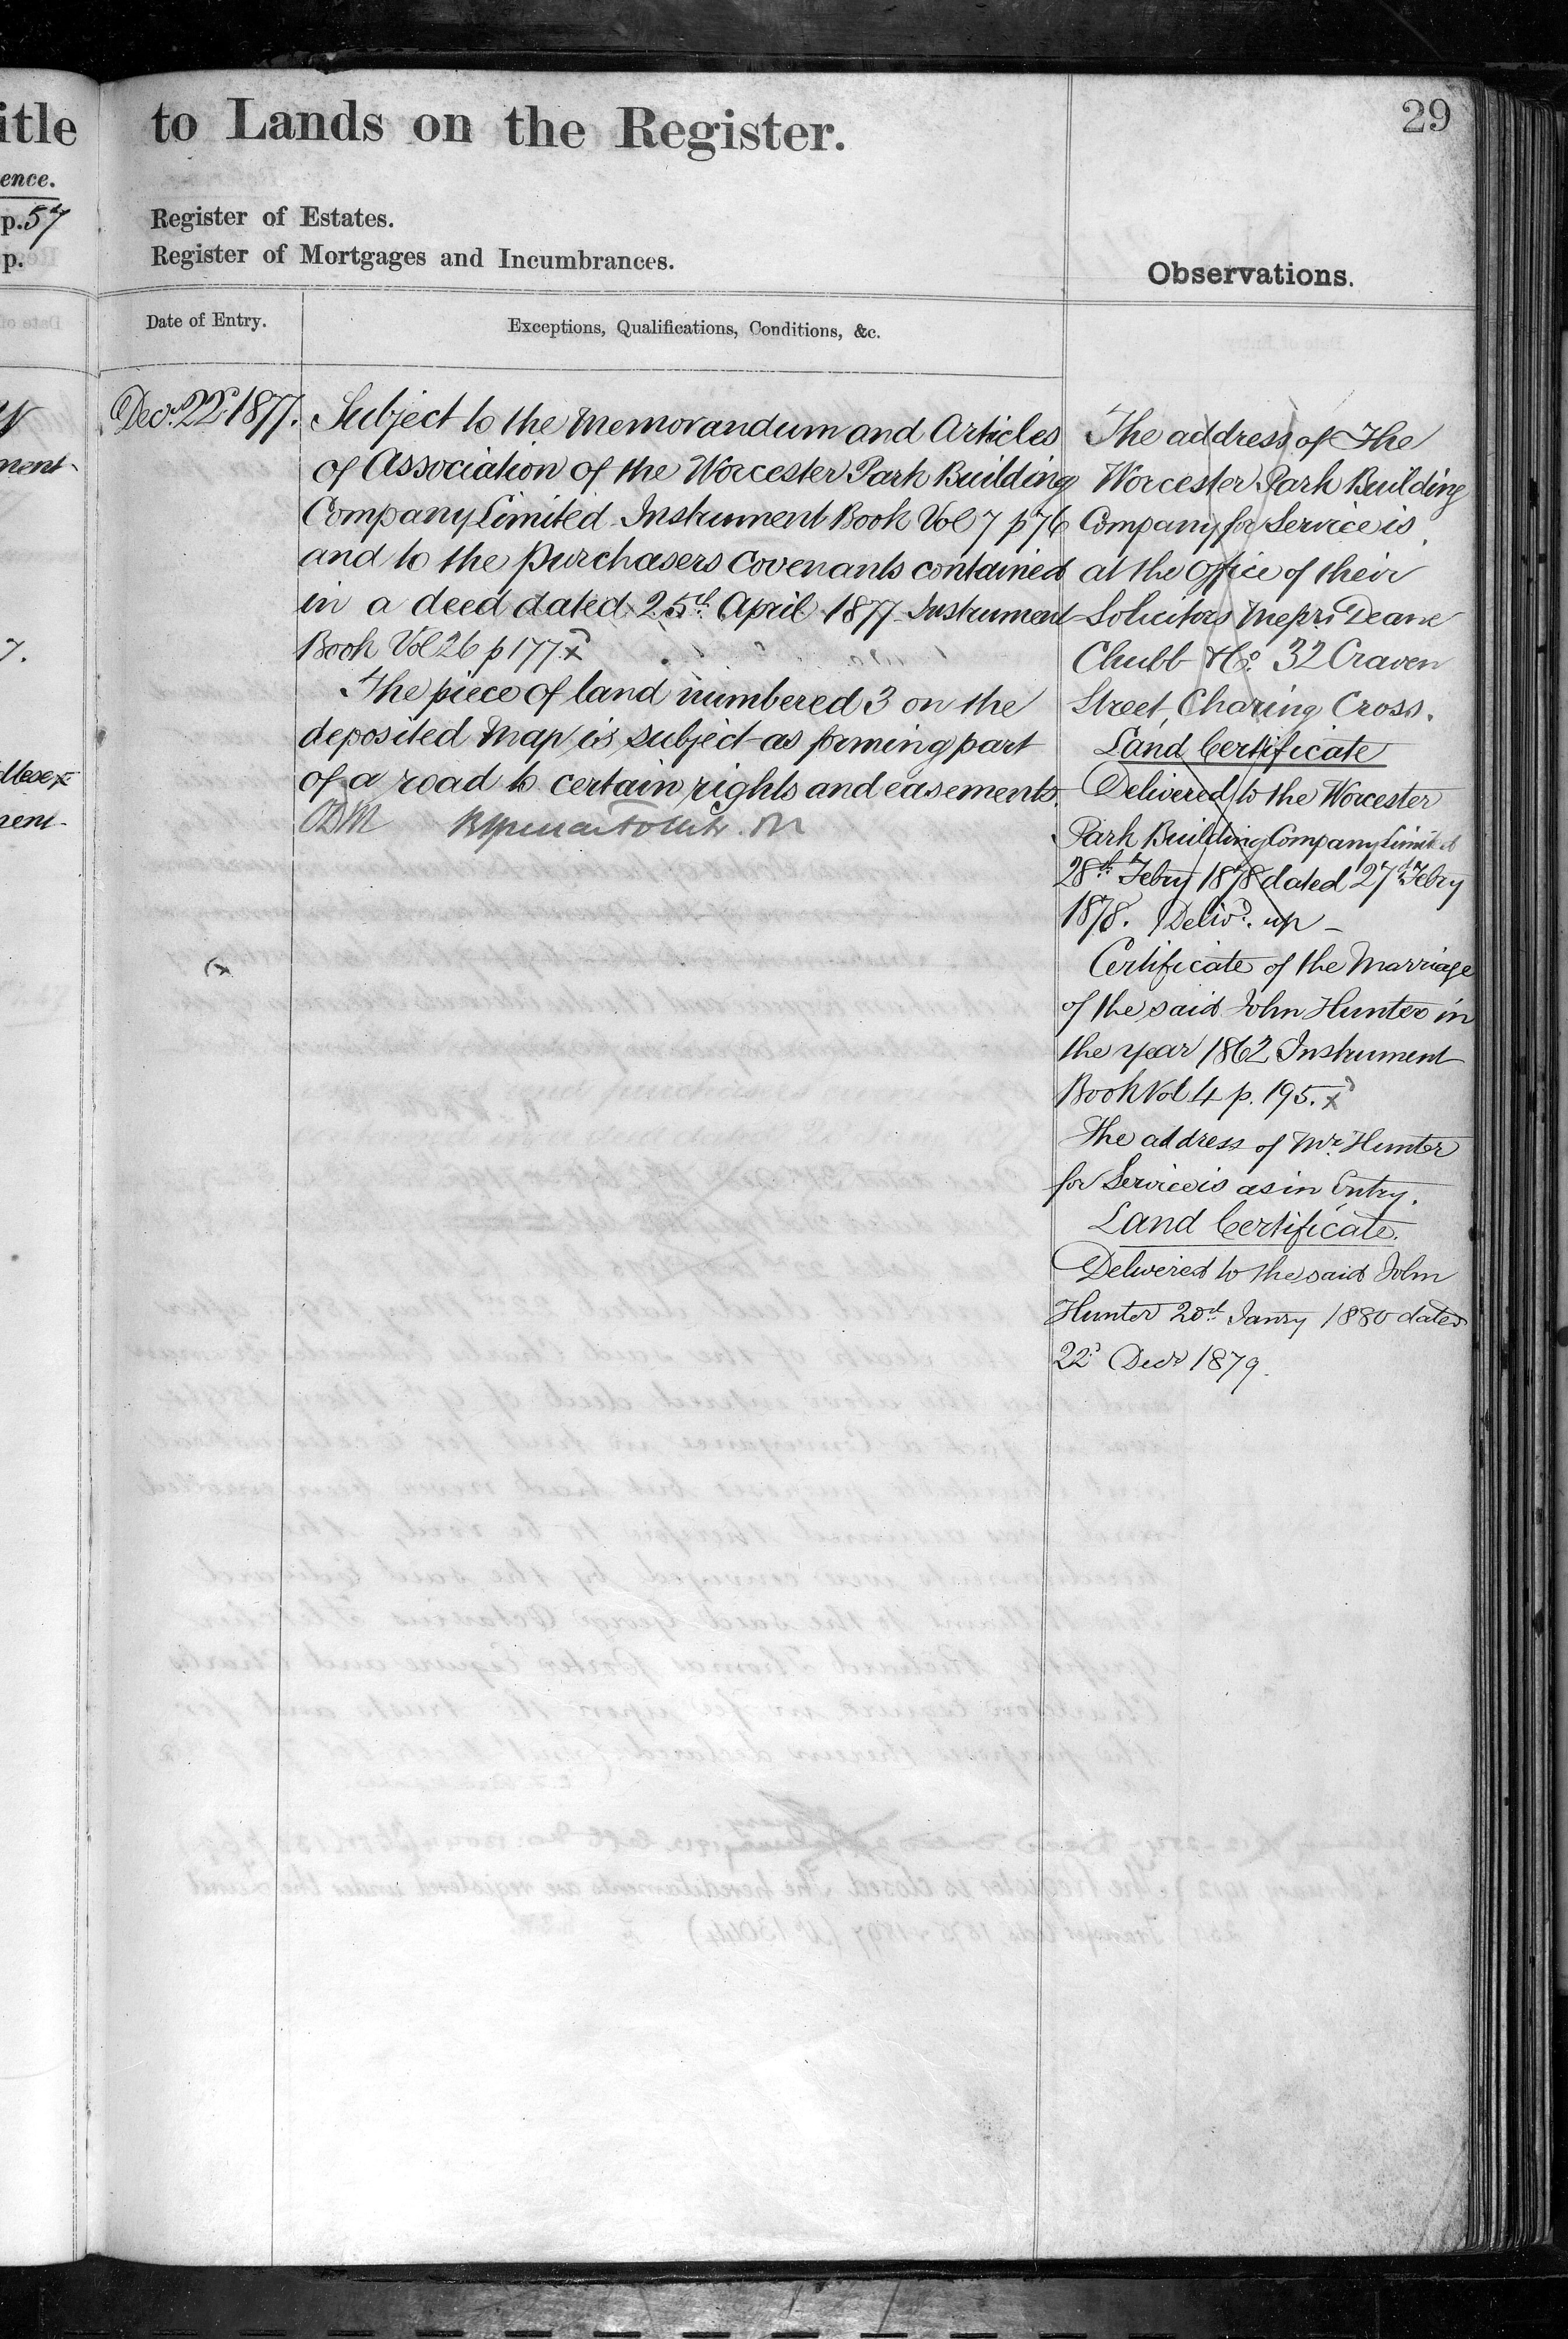 itle
ence.
p.57
p.
ment
7.
dlesex
ment
to Lands on the Register.
29
Register of Estates.
Register of Mortgages and Incumbrances.
Observations.
Date of Entry.
Exceptions, Qualifications, Conditions, &c.
Decr. 22d 1877.
Subject to the Memorandum and Articles
of Association of the Worcester Park Building
Company Limited Instrument Book Vol 7 p 76
and to the purchasers covenants contained
in a deed dated 25th April 1877 Instrument
Book Vol 26 p 177 x
The piece of land numbered 3 on the
deposited Map is subject as forming part
of a road to certain rights and easements.
The address of The
Worcester Park Building
Company for Service is
at the Office of their
Solicitors Messrs Deane
Chubb & Co. 32 Craven
Street, Charing Cross.
Land Certificate
Delivered to the Worcester
Park Building Company Limited
28th Febry 1878 dated 27th Febry
1878. Delivd. up –
Certificate of the Marriage
of the said John Hunter in
the year 1862 Instrument
Book Vol 4 p. 195. x
The address of Mr. Hunter
for Service is as in Entry.
Land Certificate.
Delivered to the said John
Hunter 20th Janry 1880 dated
22d Decr 1879.